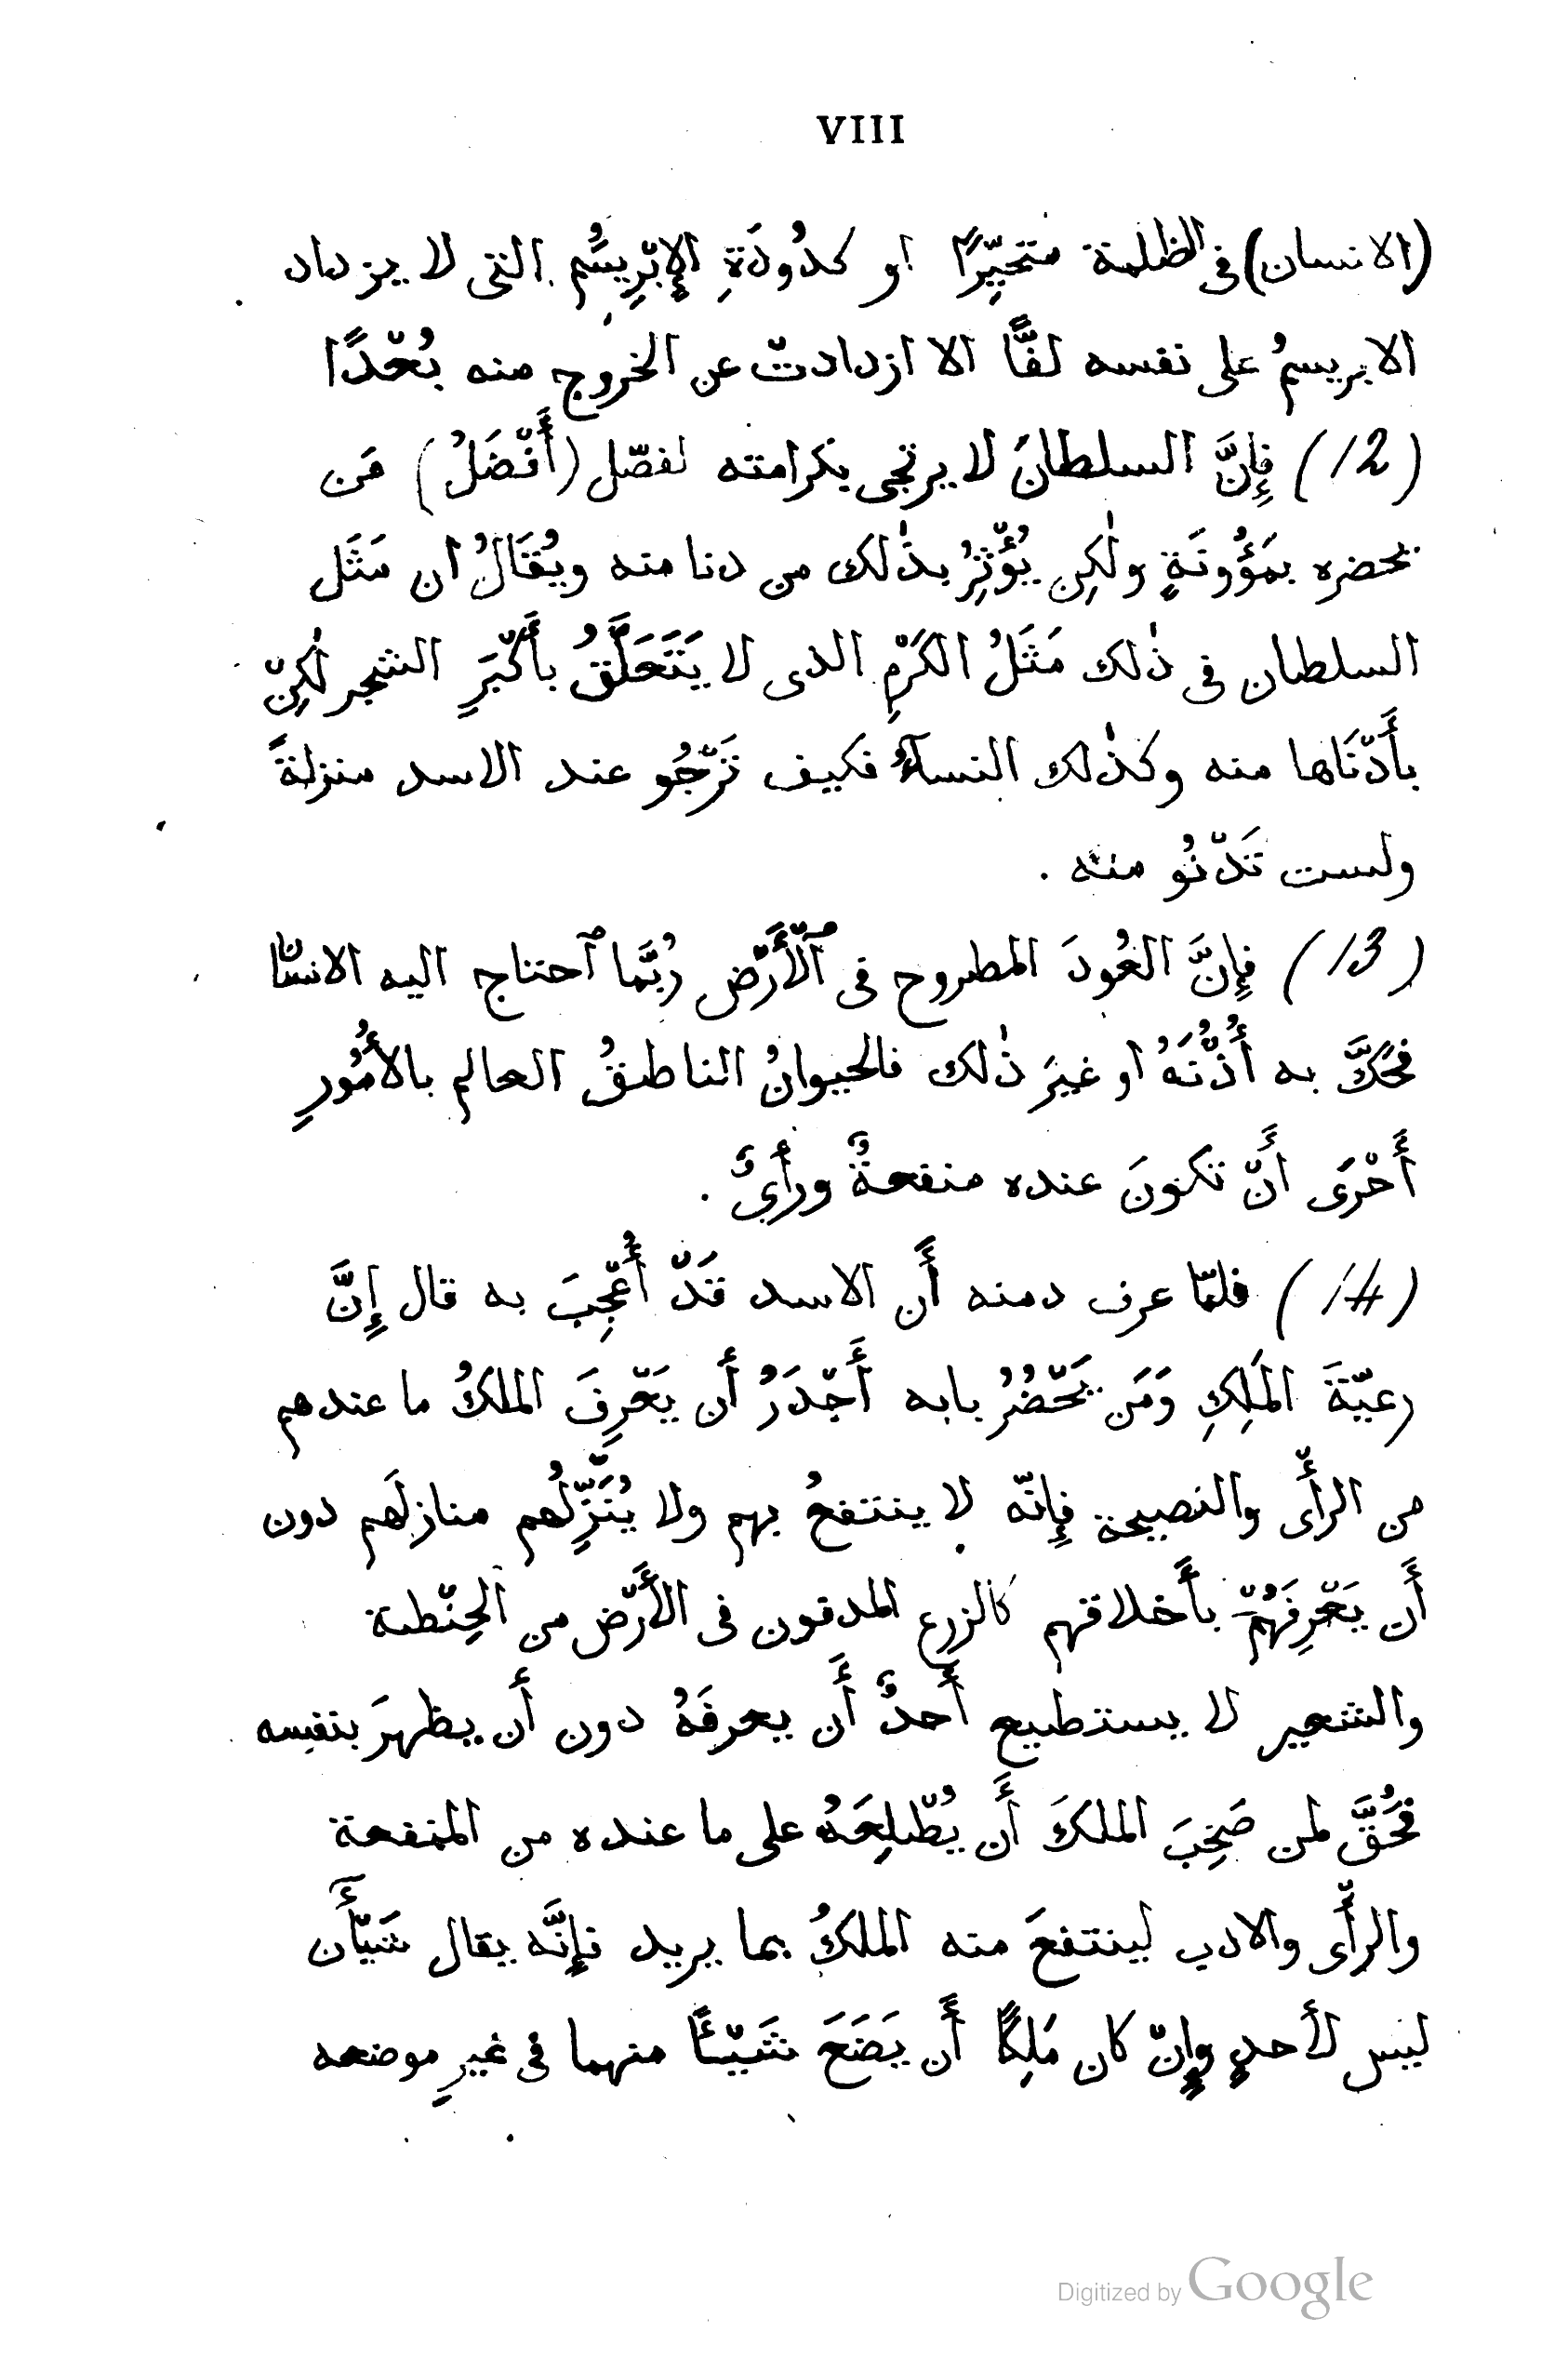 VIII
(الانسان) فى الظلمة متحيِّرًا او كدُودَةِ الإِبْرِيسَُم التى لا يزداد
الابريسمُ على نفسه لفًّا الا ازدادتْ عن الخروج منه بُعْدًا
(12) فإِنَّ السلطانَ لا يرتجى بكرامته لفصّل (أَفْضَلُ) مَن
يحضره بمَؤُونَةٍ ولٰكِن يُؤْثِرُ بذٰلك من دنا منه ويُقَالُ ان مَثَل
السلطان فى ذٰلك مَثَلُ الكَرْمِ الذى لا يَتَعَلَّقُ بأَكْبَرِ الشجر لٰكِنْ
بأَدْنَاها منه وكذٰلك النسآءُ فكيف تَرْجُو عند الاسد منزلةً
ولست تَدْنُو منه .
(13) فإِنَّ العُودَ المطروح فى ٱلْأَرْض رُبَّما ٱحتاج اليه الانسان
فحَكَّ به أُذْنَهُ او غيرَ ذٰلك فالحيوانُ الناطقُ العالم بالأُمُورِ
أَحْرَى أَنْ تكونَ عنده منفعةٌ ورأىٌ .
(14) فلمّا عرف دمنه أَن الاسد قَدْ أُعْجِبَ به قال إِنَّ
رعيّةَ المَلِكِ وَمَن يَحْضُرُ بابه أَجْدَرُ أن يَعْرِفَ الملكُ ما عندهم
من الرأْى والنصيحة فإِنّه لا ينتفعُ بهم ولا يُنَزِّلُهم منازلَهم دون
أَن يَعْرِفَهُمْ بأَخلاقهم كالزرع المدفون فى الأَرْض من الحِنْطة
والشعير لا يستطيع أَحدٌ أَن يعرفَهُ دون أَن يظهرَ بنفسه
فحُقَّ لمن صَحِبَ الملكَ أَن يُطْلِعَهُ على ما عنده من المنفعة
والرأْى والادب لينتفعَ منه الملكُ بما يريد فإِنَّه يقال شَيْأَن
ليس لأحدٍ وإِنْ كان مَلِكًا أَن يَضَعَ شَيْئًا منهما فى غيرِ موضعه
Digitized by Google